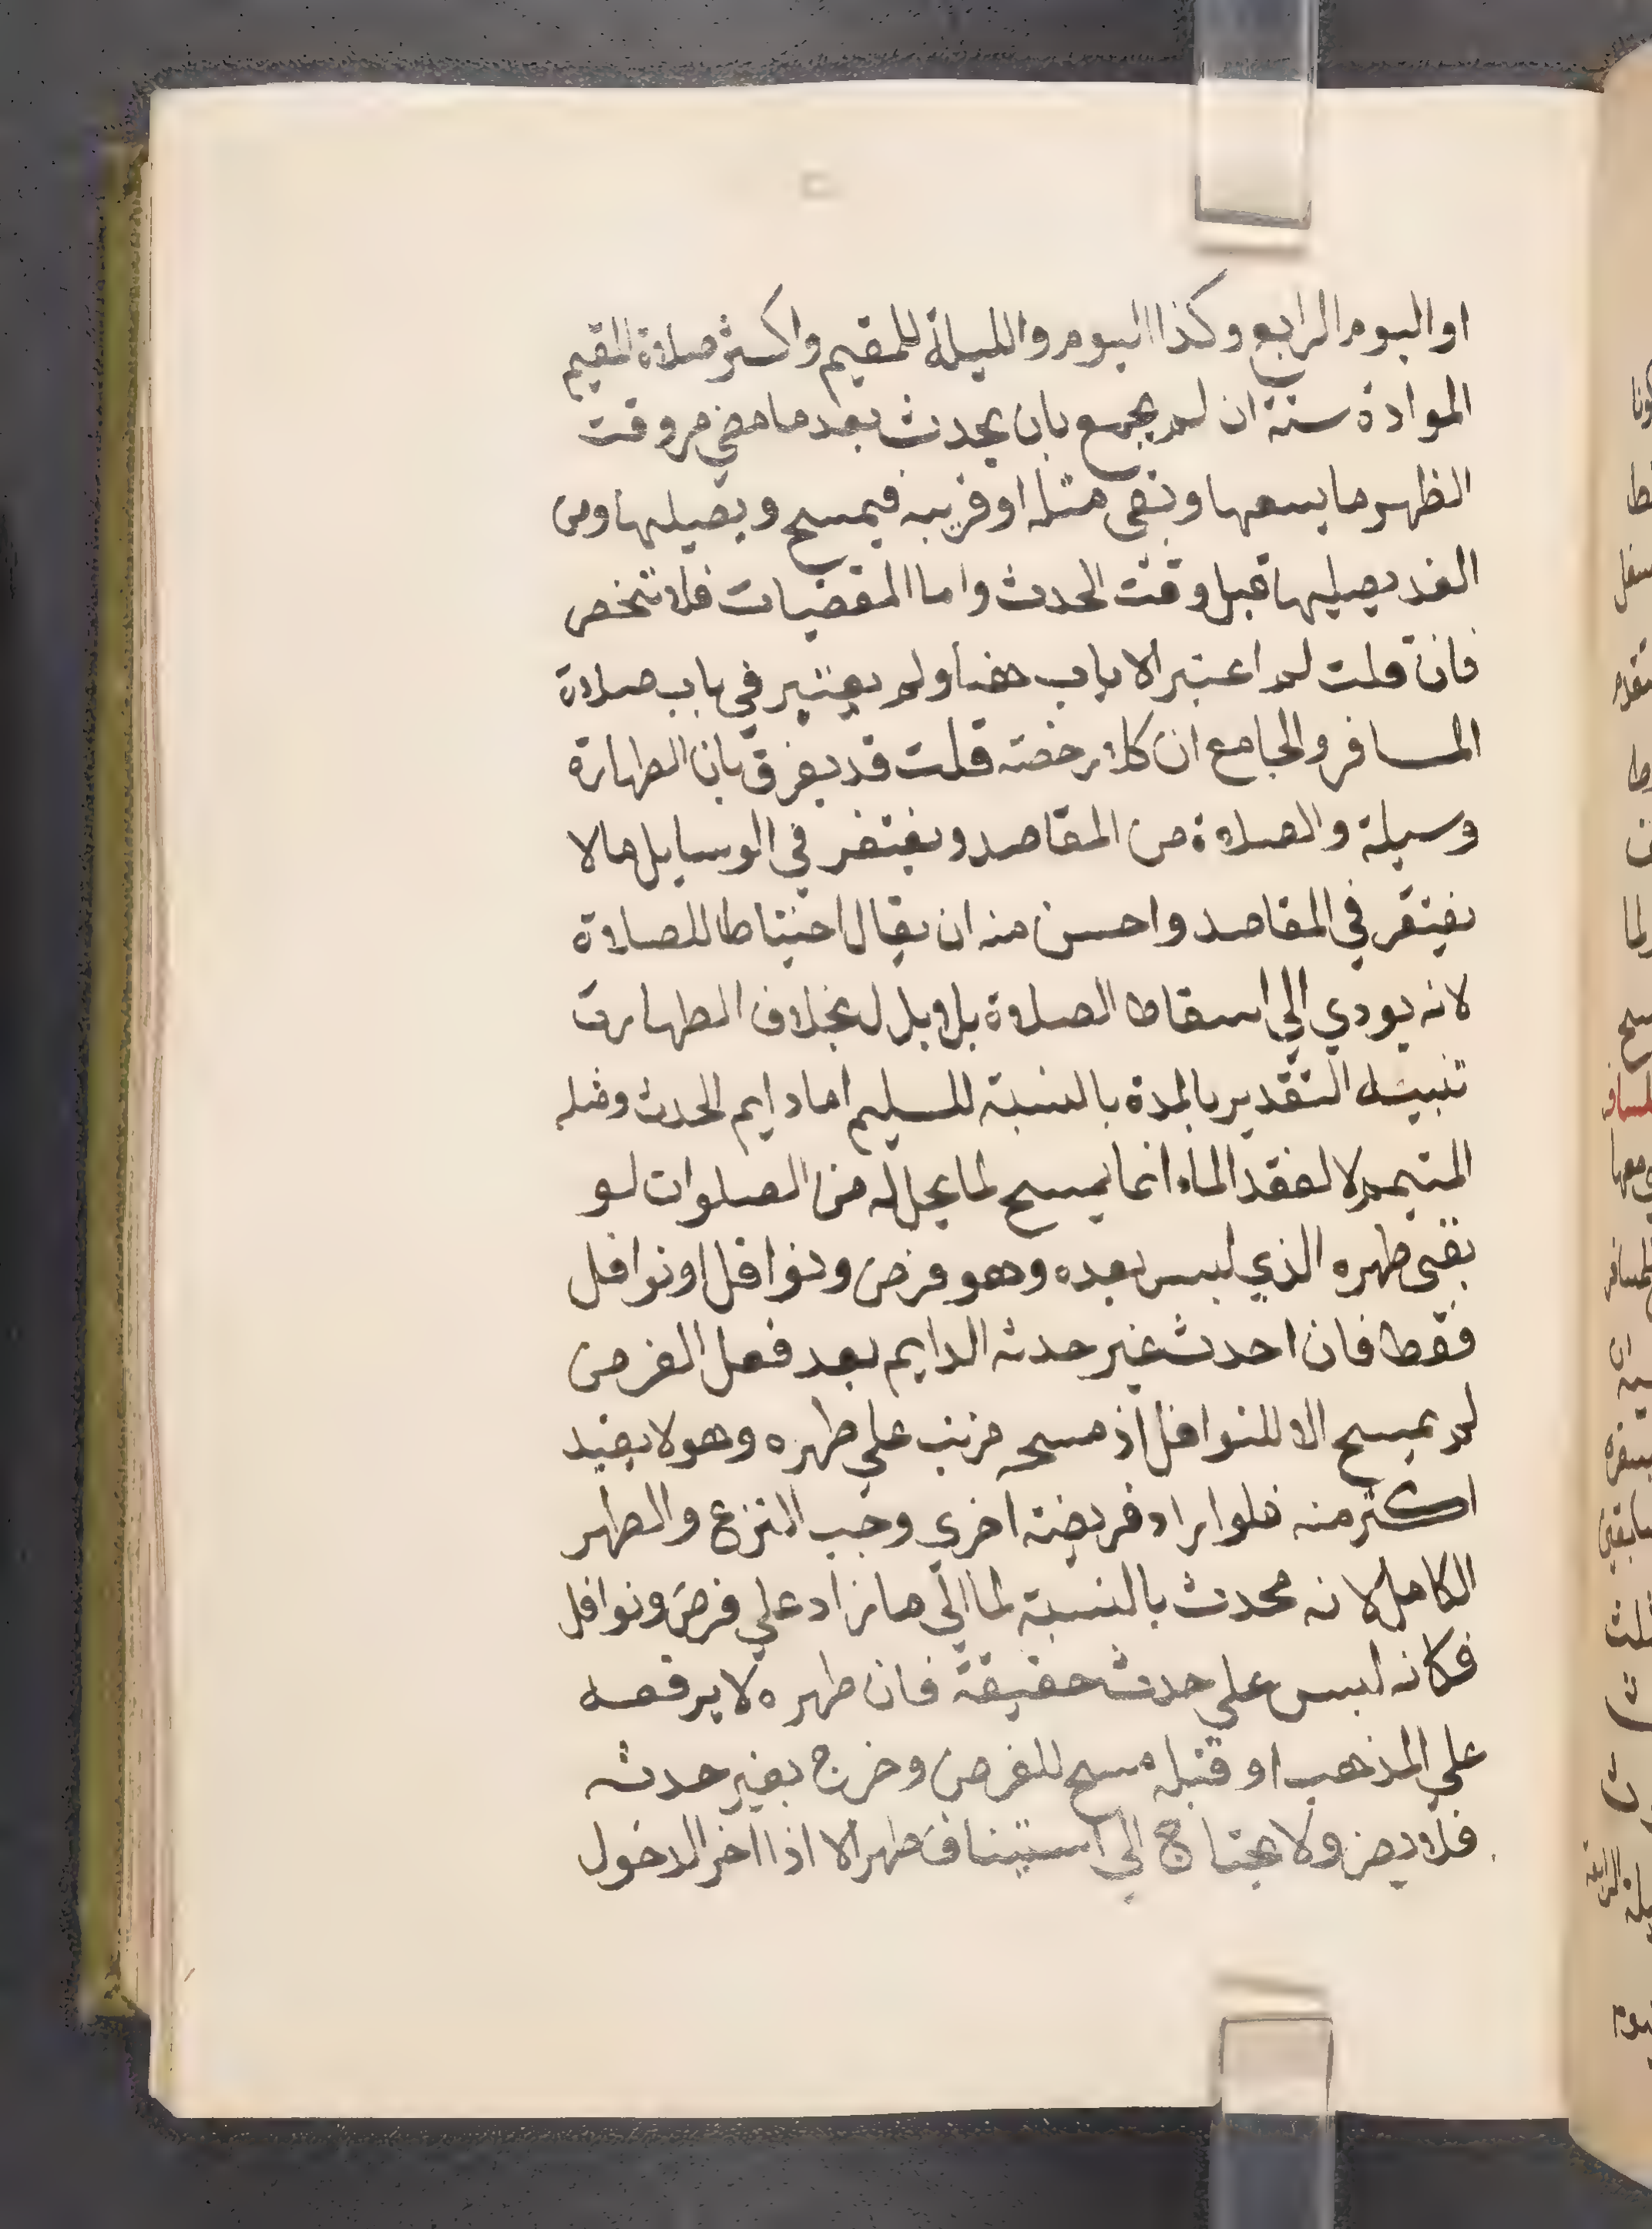 او اليوم الرابع وكذا اليوم والليلة للمقيم واكثر صلاة المقيم
الموادة ستة ان لم يجمع بان يحدث بعد ما مضي من وقت
الظهر ما يسعها وبقي مثله او قريبه فيمسح ويصليها ومن
الغد يصليها قبل وقت الحدث واما المقضيات فلا تنحصر
فان قلت لم اعتبر الاياب هنا ولم يعتبر في باب صلاة
المسافر والجامع ان كلا رخصة قلت قد يفرق بان الطهارة
وسيلة والصلاة من المقاصد ويغتفر في الوسايل ما لا
يغتفر في المقاصد واحسن منه ان يقال احتياطا للصلاة
لانه يودي الي اسقاط الصلاة بلا بدل بخلاف الطهارة
تنبيه التقدير بالمدة بالنسبة للسليم اما دايم الحدث ومثله
المتيمم لا لفقد الماء انما يمسح لما يحل له من الصلوات لو
بقي طهره الذي لبس بعده وهو فرض ونوافل او نوافل
فقط فان احدث غير حدثه الدايم بعد فعل الفرض
لم يمسح الا للنوافل اذ مسحه مرتب علي طهره وهو لا يفيد
اكثر منه فلو اراد فريضة اخري وجب النزع والطهر
الكامل لانه محدث بالنسبة لما الي ما زاد علي فرض ونوافل
فكانه لبس علي حدث حقيقة فان طهره لا يرفعه
علي المذهب او قبله مسح للفرض وخرج بغير حدثه
فلا يضر ولا يحتاج الي استيناف طهر الا اذا اخر الدخول